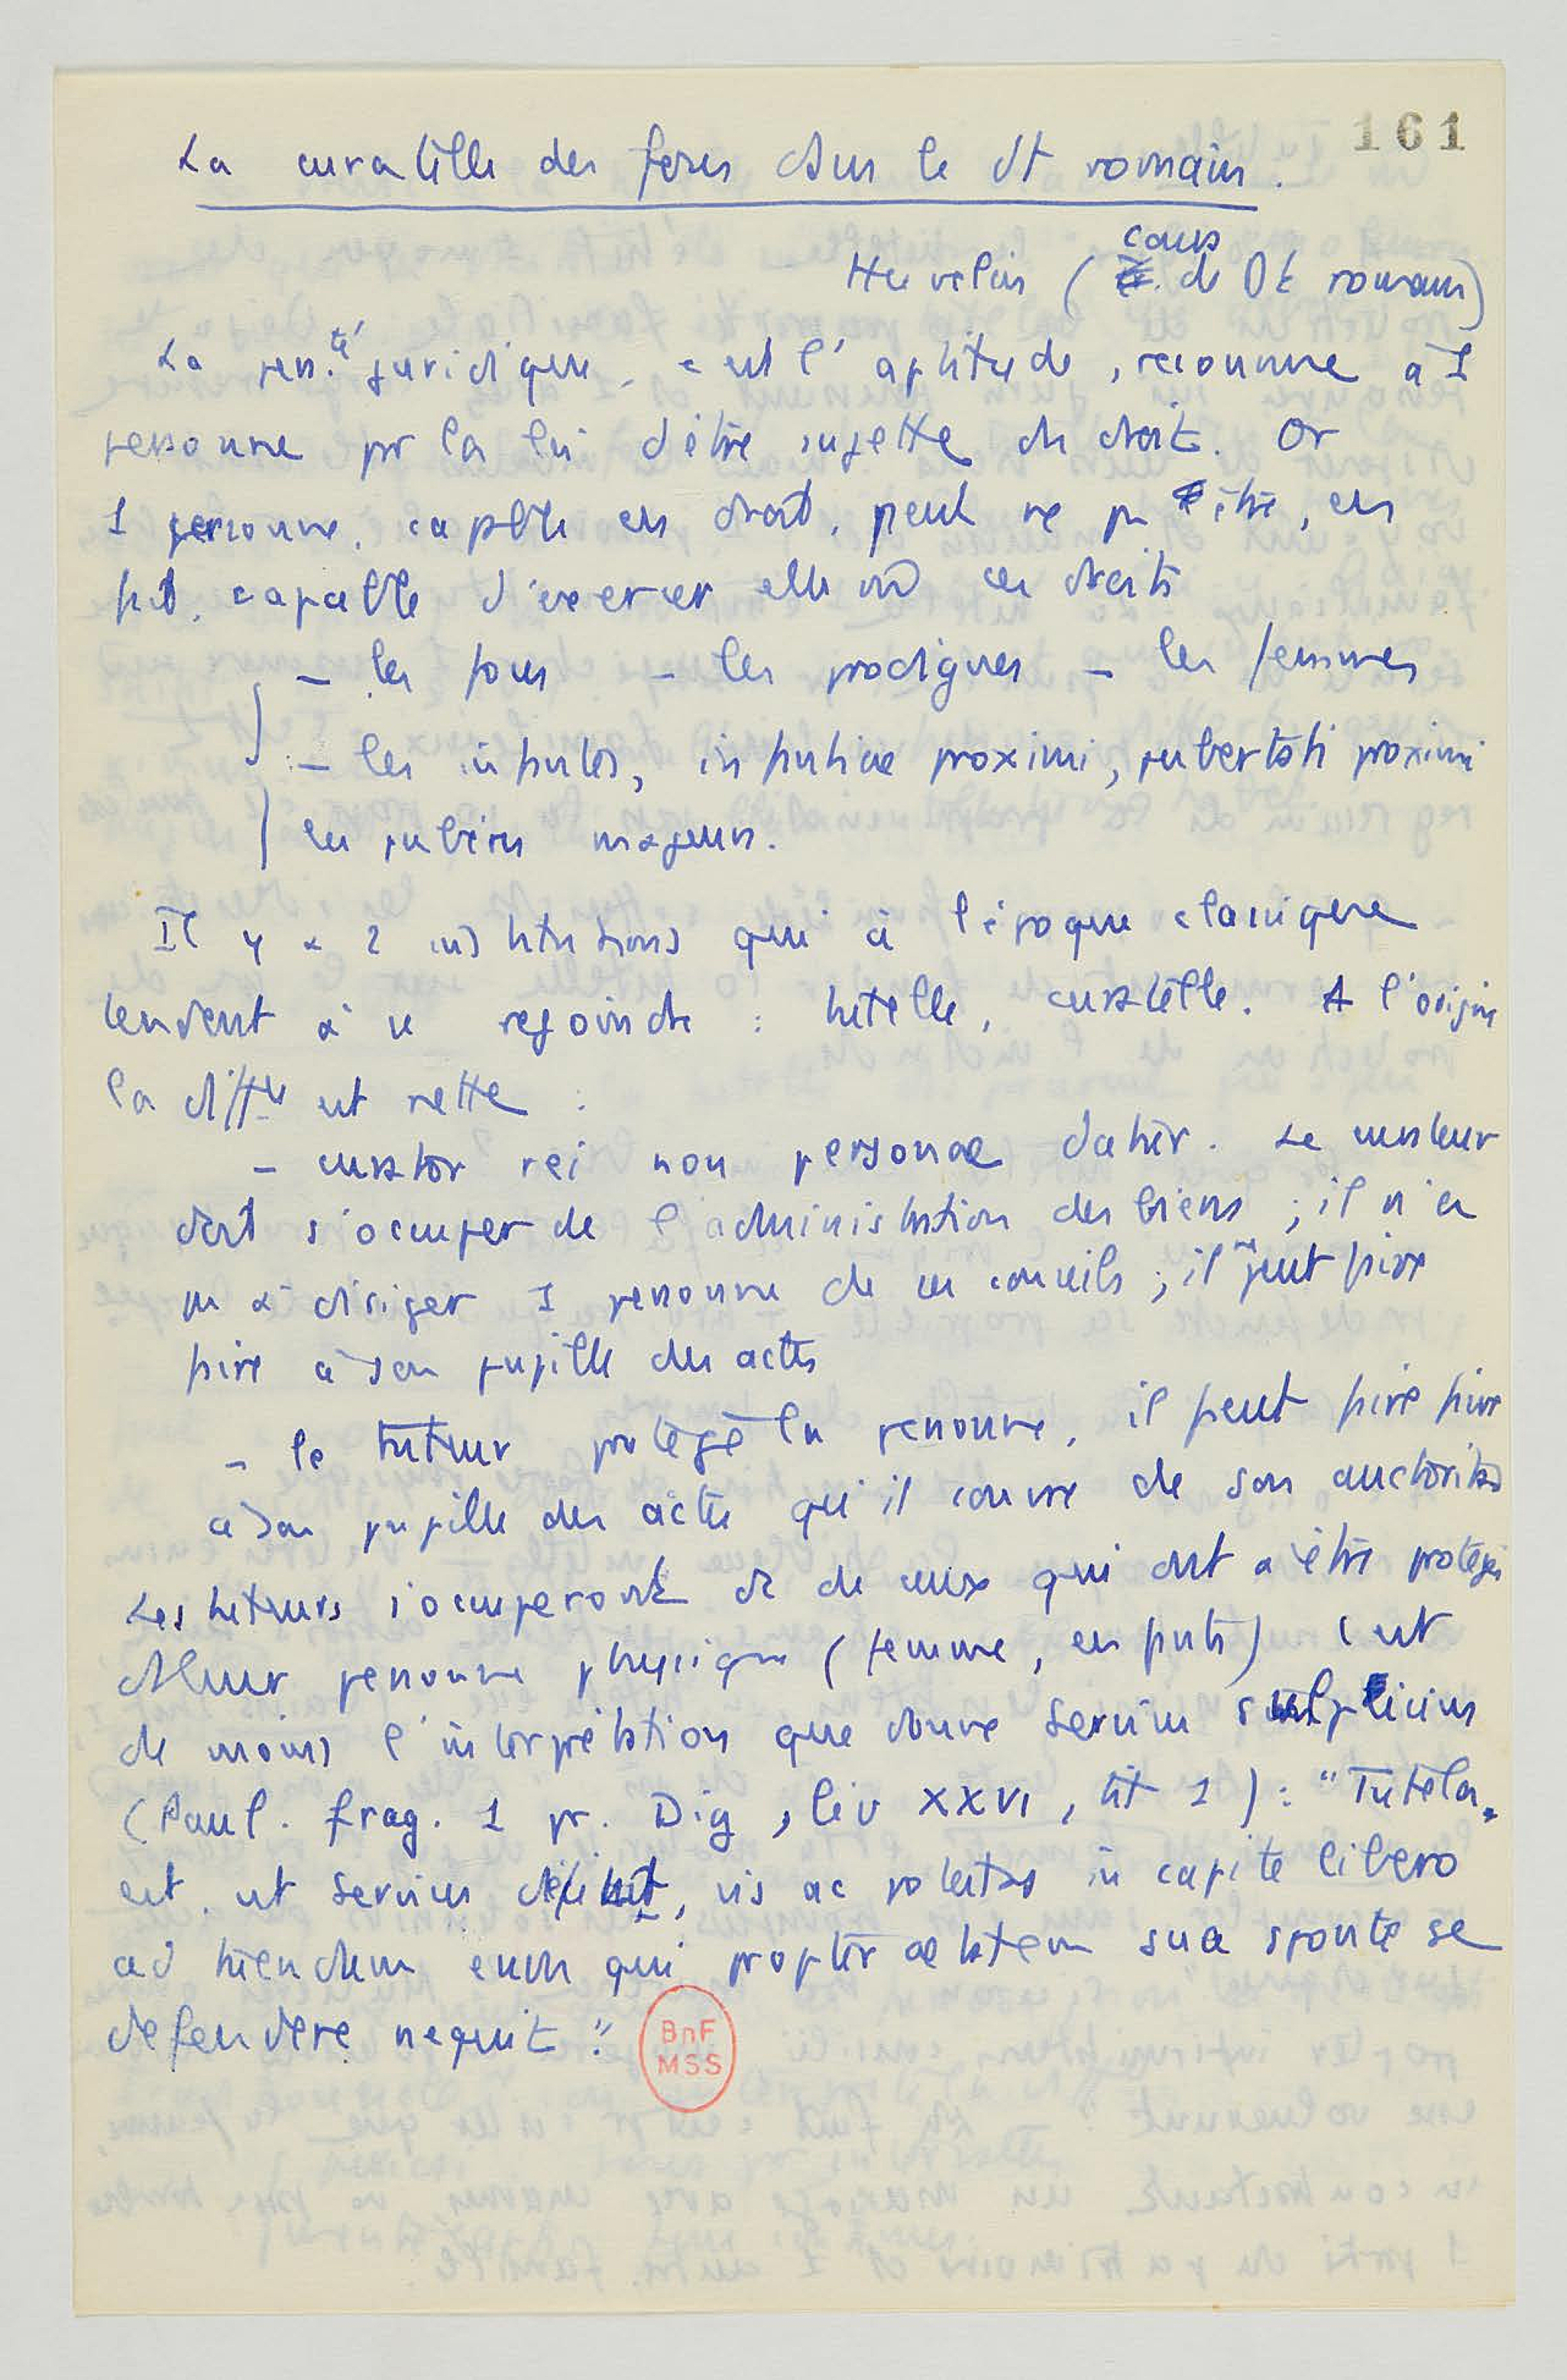 161
La curatelle des fous dans le dt romain.
Huvelin (cours de Dt romain)
La pers.té juridique, c'est l'aptitude, reconnue à 1
personne par la loi d'être sujette de droit. Or
1 personne, capable en droit, peut ne pas être, en
fait, capable d'exercer elle m̂ ces droits
– les fous – les prodigues – les femmes
– les infantes, infantiae proximi, pubertati proximi
les pubères majeurs.
Il y a 2 institutions qui à l'époque classique
tendent à se rejoindre : tutelle, curatelle. A l'origine
la diffce est nette :
– curator rei non personae datur. Le curateur
doit s'occuper de l'administration des biens ; il n'a
pas à diriger 1 personne de ses conseils ; il ne peut faire
faire à son pupille des actes
– le tuteur protège la personne, il peut faire faire
à son pupille des actes qu'il couvre de son auctoritas
Les tuteurs s'occuperont de ceux qui ont à être protégés
ds leur personne physique (femme, enfants) c'est
du moins l'interprétation que donne Servius Sulpicius
(Paul. frag. 1 pr. Dig, liv XXVI, tit 1) : "Tutela
est, ut Servius definit, vis ac potestas in capite libero
ad tuendum eum qui propter aetatem sua sponte se
defendere nequit".
BnF
MSS